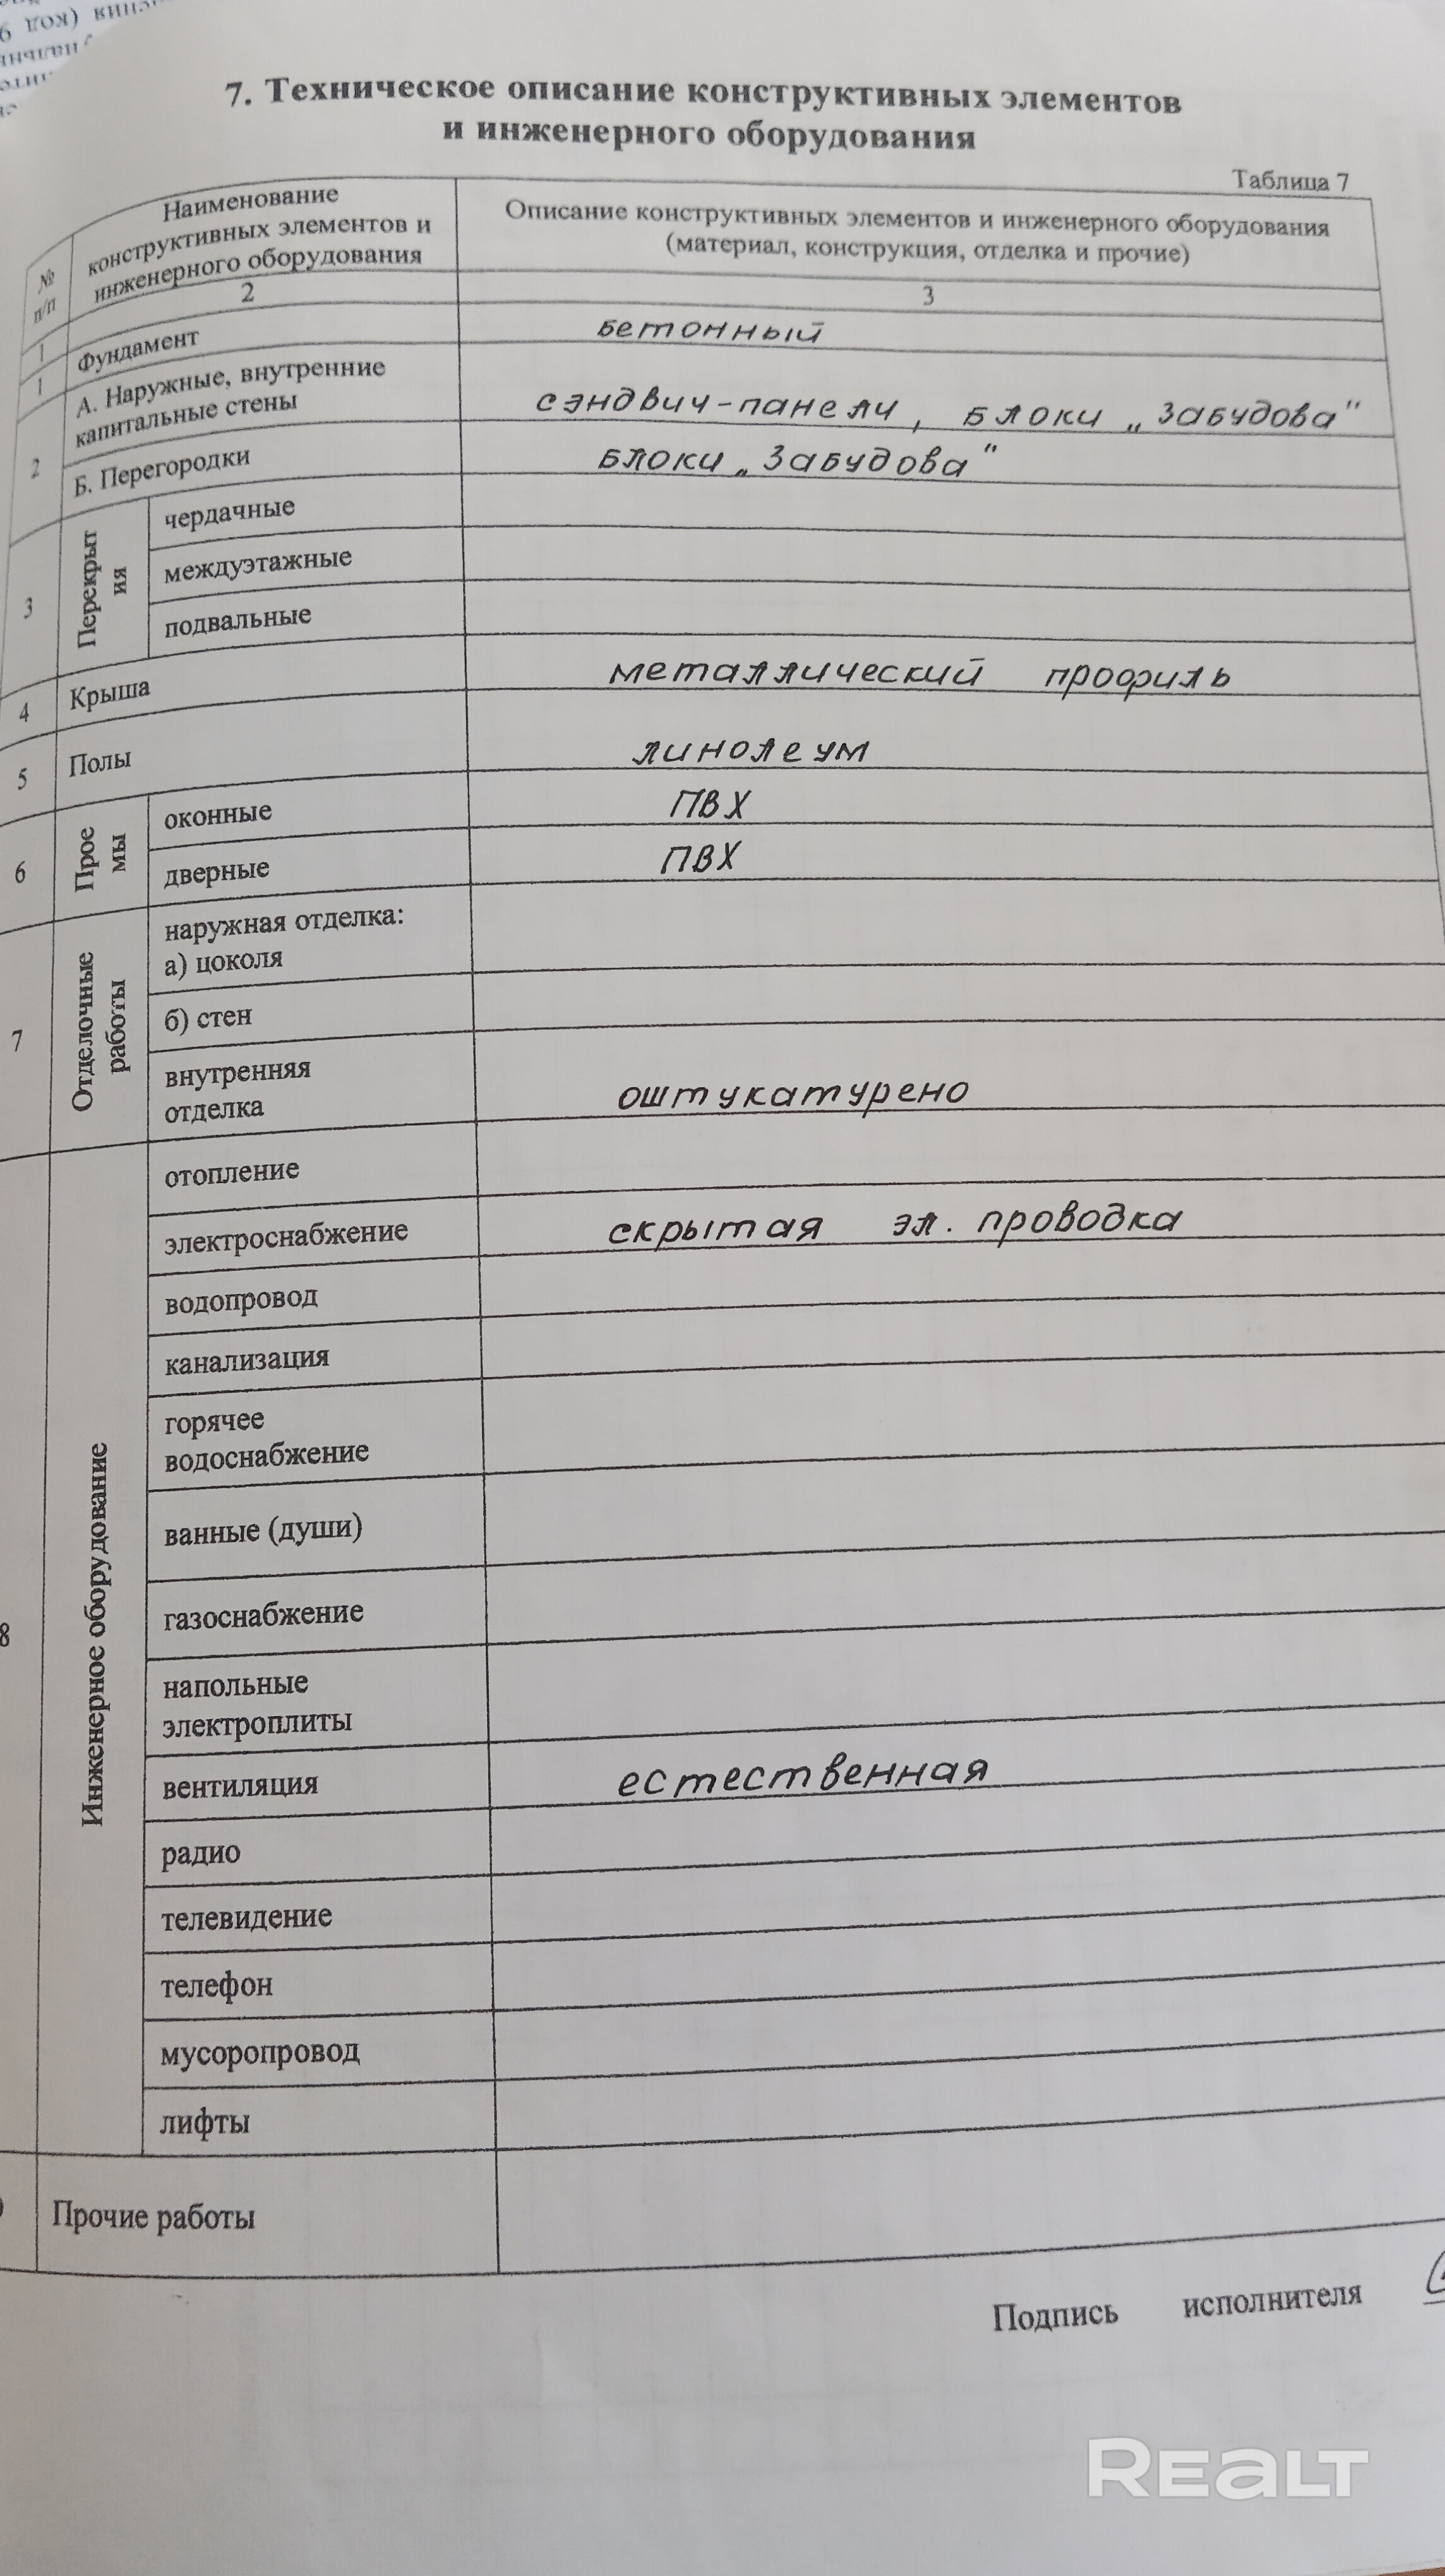 7. Техническое описание конструктивных элементов
и инженерного оборудования
Таблица 7
№
п/п
Наименование
конструктивных элементов и
инженерного оборудования
Описание конструктивных элементов и инженерного оборудования
(материал, конструкция, отделка и прочие)
1 2 3
1 Фундамент бетонный
2 А. Наружные, внутренние
капитальные стены сэндвич-панели, блоки „Забудова"
Б. Перегородки блоки „Забудова"
3 Перекрыт
ия
чердачные
междуэтажные
подвальные
4 Крыша металлический профиль
5 Полы линолеум
6 Прое
мы
оконные ПВХ
дверные ПВХ
7 Отделочные
работы
наружная отделка:
а) цоколя
б) стен
внутренняя
отделка оштукатурено
8 Инженерное оборудование
отопление
электроснабжение скрытая эл. проводка
водопровод
канализация
горячее
водоснабжение
ванные (души)
газоснабжение
напольные
электроплиты
вентиляция естественная
радио
телевидение
телефон
мусоропровод
лифты
Прочие работы
Подпись исполнителя
REALT